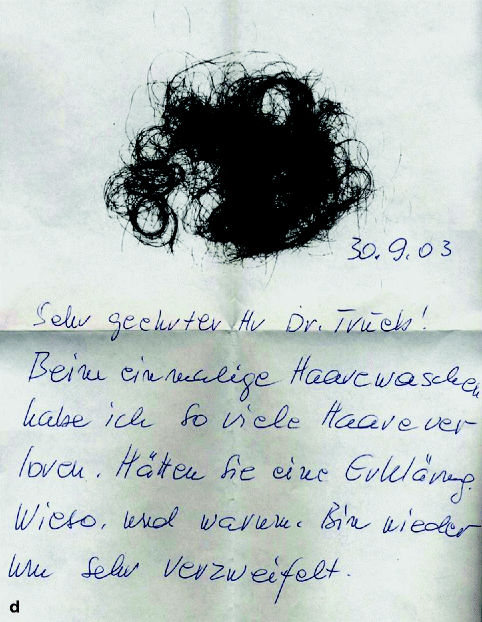 30.9.03
Sehr geehrter Hr Dr. Trück!
Beim einmalige Haarewaschen
habe ich so viele Haare ver-
loren. Hätten Sie eine Erklärung.
Wieso, und warum. Bin wieder
um sehr verzweifelt.
d